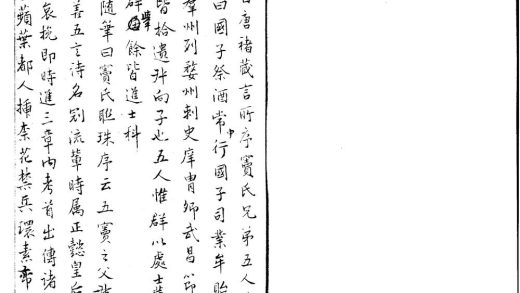 唐褚藏言所序竇氏兄弟五人
曰國子祭酒常中行國子司業牟貽
羣州列婺州刺史庠冑卿武昌節
皆拾遺升向子也五人惟群以處士
群餘皆進士科
隨筆曰竇氏聯珠序云五竇之父
善五言詩名冠流輩時属正懿皇后
哀挽即時進三章内考首出傳諸
蘋葉都人插柰花禁兵環素帟